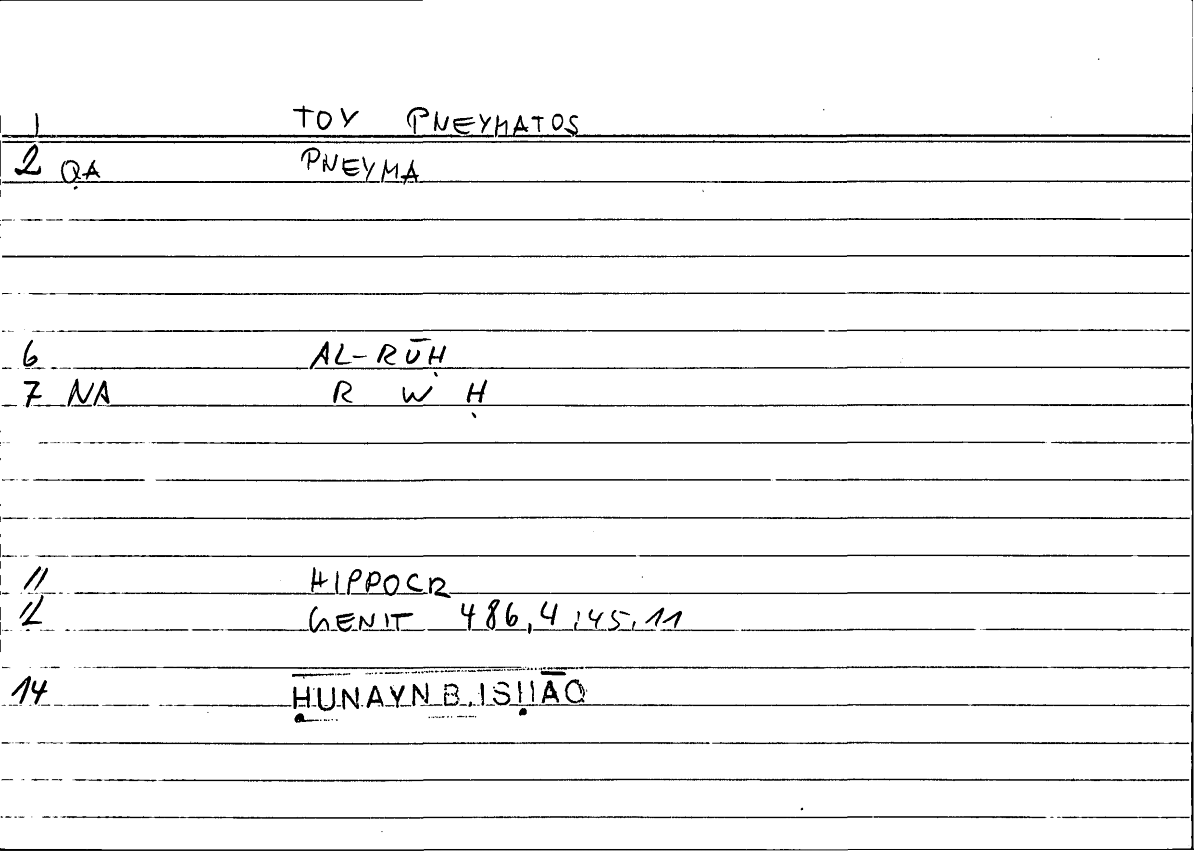 1 TOY PNEYMATOS
2 QA PNEYMA
6 AL-RŪḤ
7 NA R W Ḥ
11 HIPPOCR
12 GENIT 486,4;45,11
14 ḤUNAYN B. ISḤĀQ